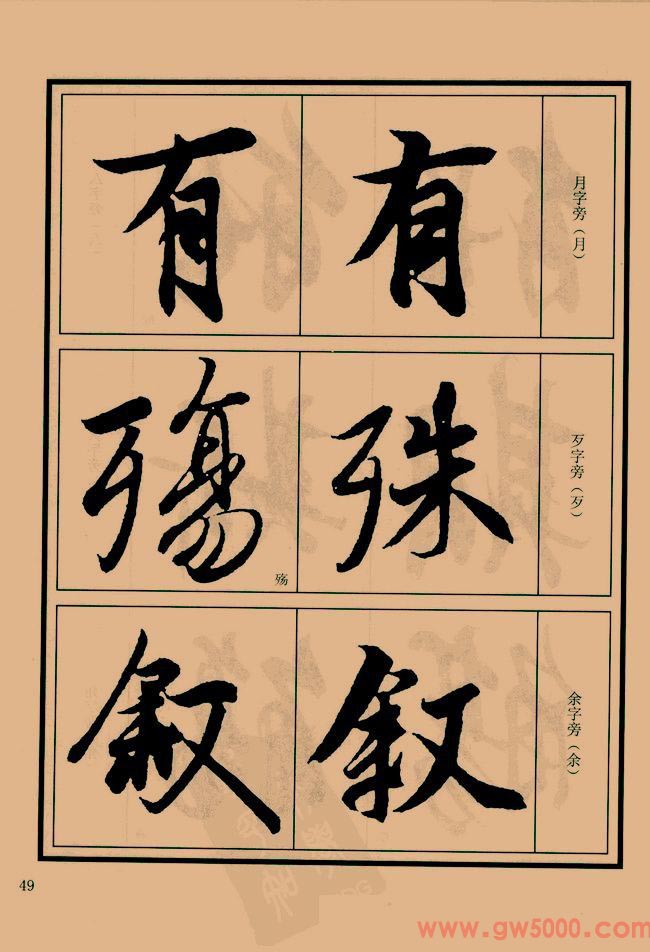 月字旁（月）
有
有
歹字旁（歹）
殊
殤
殇
余字旁（余）
敘
敘
49
www.gw5000.com